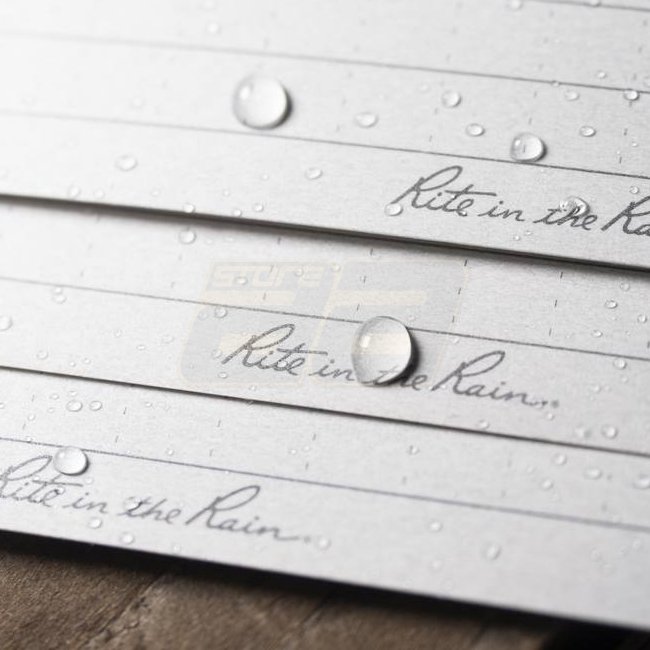 Rite in the Ra
store
26
Rite in the Rain...
Rite in the Rain...